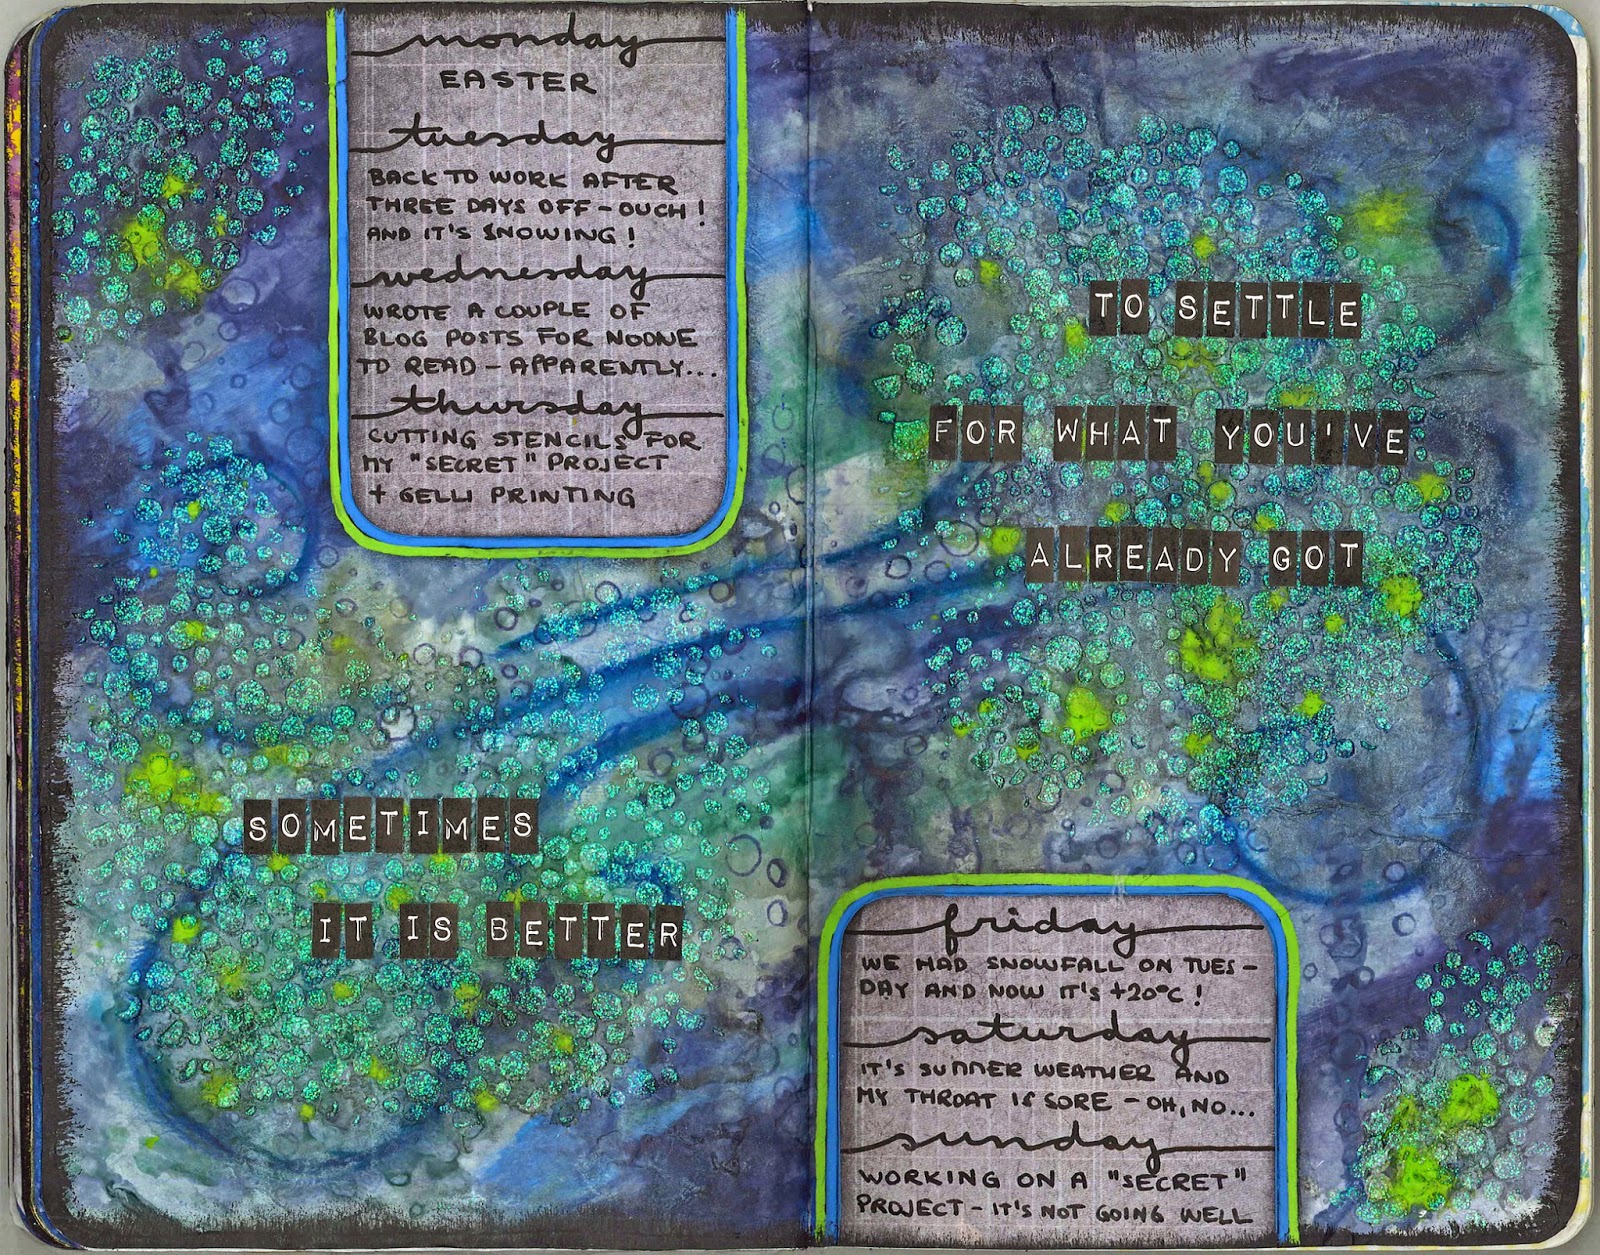 monday
EASTER
tuesday
BACK TO WORK AFTER
THREE DAYS OFF - OUCH!
AND IT'S SNOWING!
wednesday
WROTE A COUPLE OF
BLOG POSTS FOR NOONE
TO READ - APPARENTLY...
thursday
CUTTING STENCILS FOR
MY "SECRET" PROJECT
+ GELLI PRINTING
SOMETIMES
IT IS BETTER
TO SETTLE
FOR WHAT YOU'VE
ALREADY GOT
friday
WE HAD SNOWFALL ON TUES-
DAY AND NOW IT'S +20°C!
saturday
IT'S SUMMER WEATHER AND
MY THROAT IS SORE - OH, NO...
sunday
WORKING ON A "SECRET"
PROJECT - IT'S NOT GOING WELL